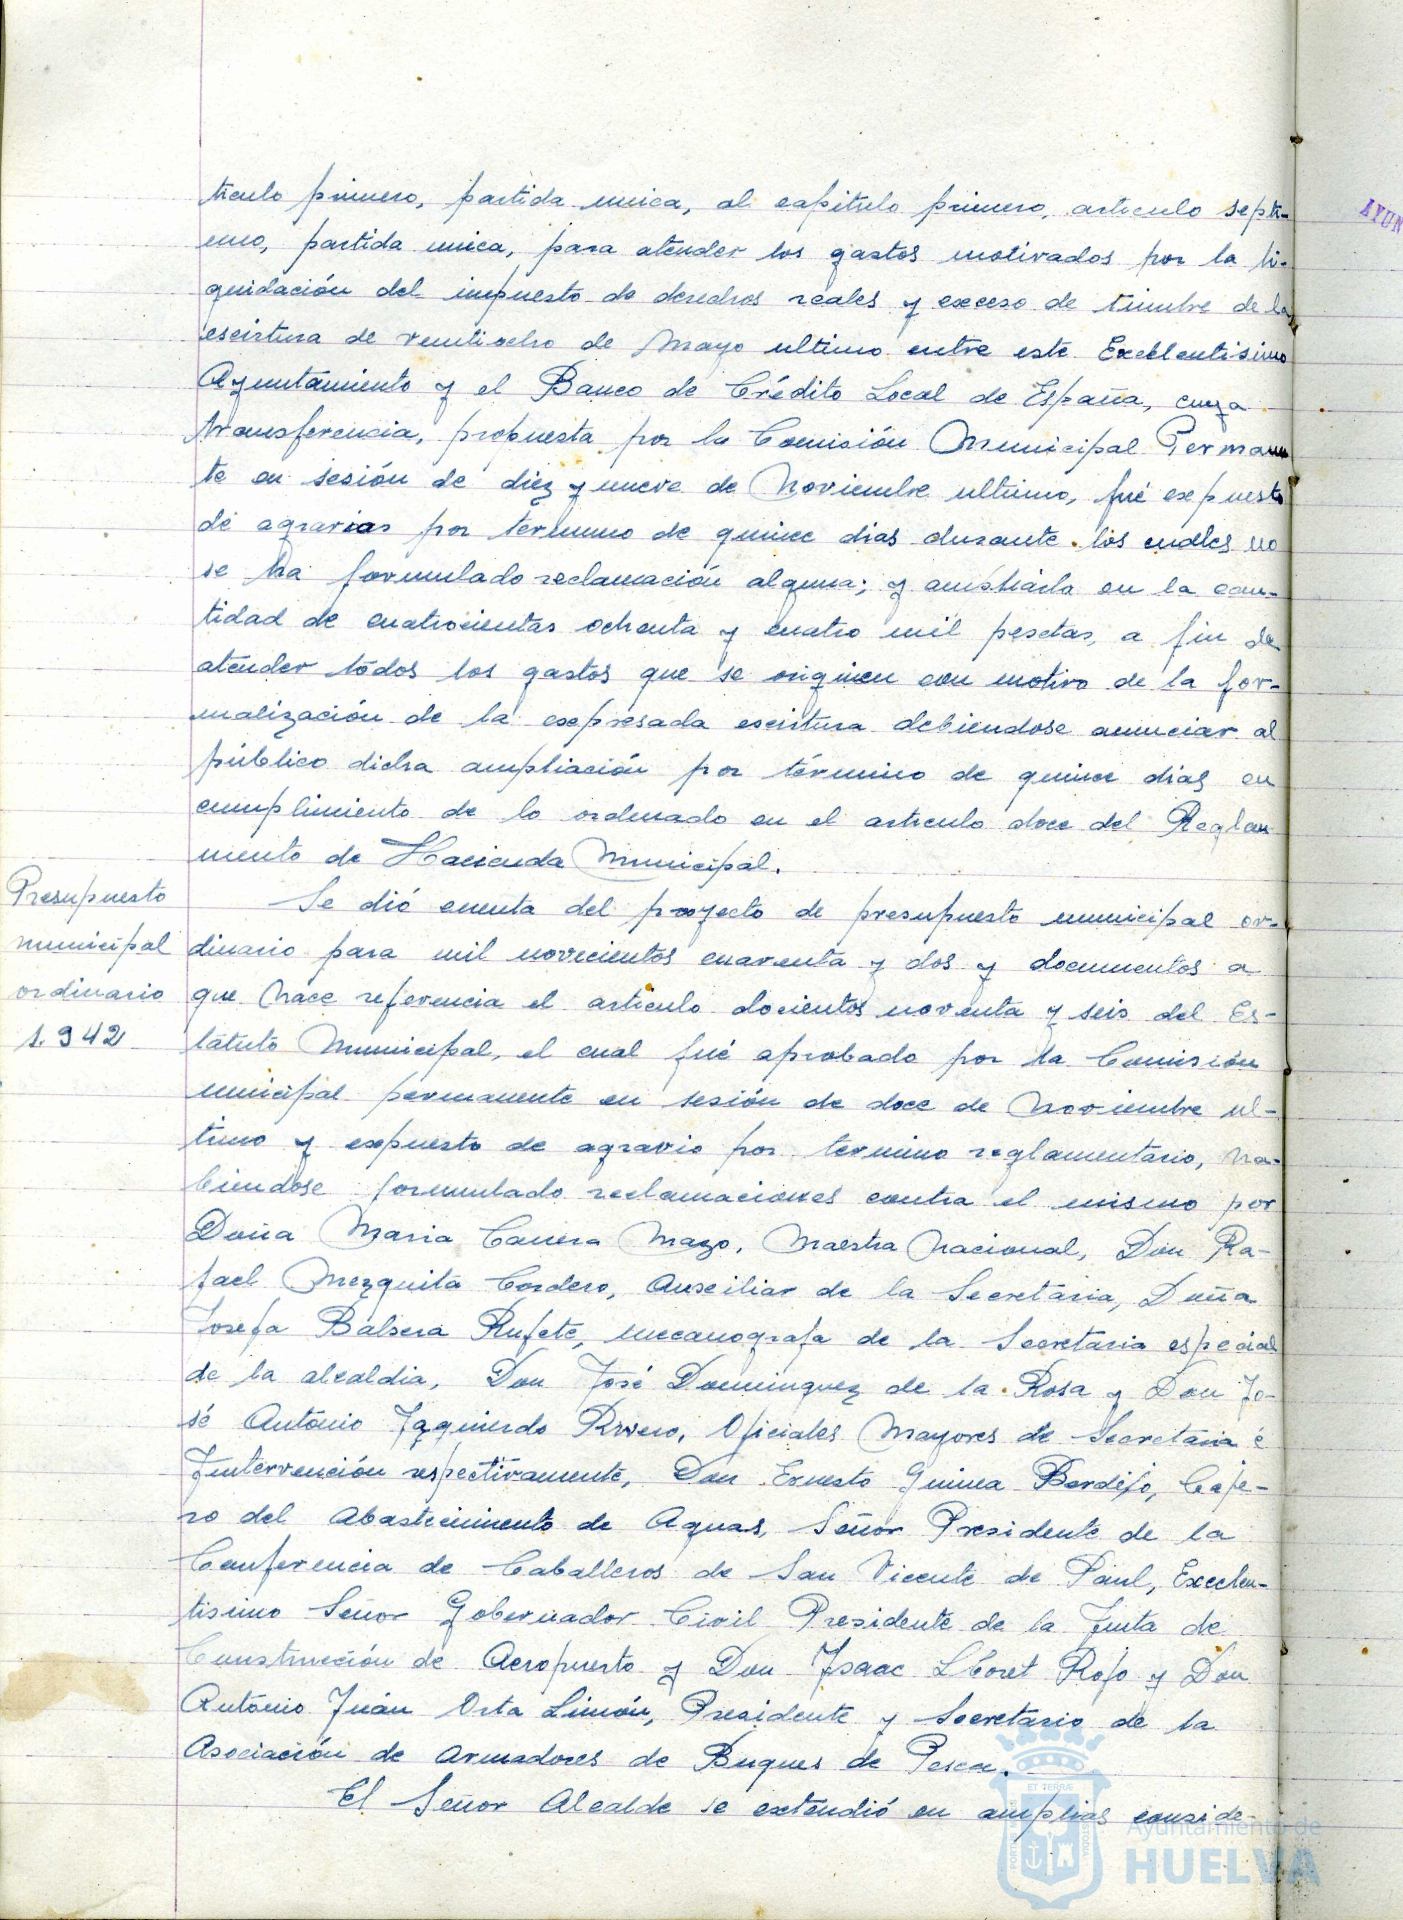 ticulo primero, partida unica, al capitulo primero, articulo septi-
mo, partida unica, para atender los gastos motivados por la li-
quidación del impuesto de derechos reales y exceso de timbre de la
escritura de ventiocho de Mayo ultimo entre este Excelentisimo
Ayuntamiento y el Banco de Crédito Local de España, cuya
transferencia, propuesta por la Comisión Municipal Permanen
te en sesión de diez y nueve de Noviembre ultimo, fué expuesta
de agravios por termino de quince dias durante los cuales no
se ha formulado reclamación alguna; y ampliarla en la can-
tidad de cuatrocientas ochenta y cuatro mil pesetas, a fin de
atender todos los gastos que se originen con motivo de la for-
malización de la expresada escritura debiendose anunciar al
público dicha ampliación por término de quince dias en
cumplimiento de lo ordenado en el articulo doce del Reglan
mento de Hacienda Municipal.
Presupuesto
municipal
ordinario
1.942
Se dió cuenta del proyecto de presupuesto municipal or-
dinario para mil novecientos cuarenta y dos y documentos a
que hace referencia el articulo docientos noventa y seis del Es-
tatuto Municipal, el cual fué aprobado por la Comisión
municipal permanente en sesión de doce de Noviembre ul-
timo y expuesto de agravio por termino reglamentario, ha-
biendose formulado reclamaciones contra el mismo por
Doña Maria Mazo, Maestra Nacional, Don Ra-
fael Mezquita Cordero, Auxiliar de la Secretaria, Doña
Josefa Balsera Rufete, mecanografa de la Secretaria especial
de la alcaldia, Don José Dominguez de la Rosa y Don Jo-
sé Antonio Izquierdo Rivero, Oficiales Mayores de Secretaria é
Intervención respectivamente, Don Ernesto Guinea Berdejo, Caje-
ro del Abastecimiento de Aguas, Señor Presidente de la
Conferencia de Caballeros de San Vicente de Paul, Excelen-
tisimo Señor Gobernador Civil Presidente de la Junta de
Construcción de Aeropuerto y Don Isaac Lloret Rojo y Don
Antonio Juán Orta Limón, Presidente y Secretario de la
Asociación de Armadores de Buques de Pesca.
El Señor Alcalde se extendió en amplias conside-
AYUN
Ayuntamiento de
HUELVA